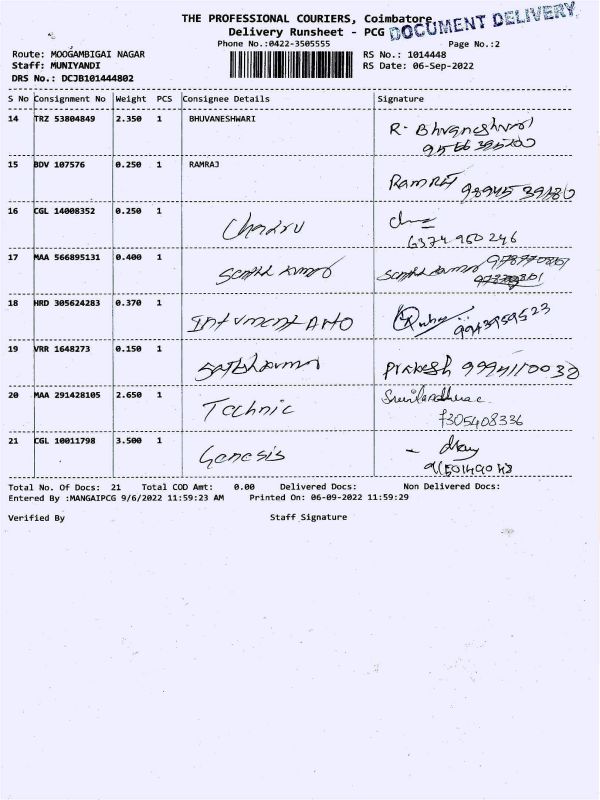 THE PROFESSIONAL COURIERS, Coimbatore
Delivery Runsheet - PCG
DOCUMENT DELIVERY
Phone No.:0422-3505555 Page No.:2
Route: MOOGAMBIGAI NAGAR RS No.: 1014448
Staff: MUNIYANDI RS Date: 06-Sep-2022
DRS No.: DCJB101444802
S No Consignment No Weight PCS Consignee Details Signature
14 TRZ 53804849 2.350 1 BHUVANESHWARI
R. Bhvaneshwari
15 BDV 107576 0.250 1 RAMRAJ
RAMRAJ 98945 39180
16 CGL 14008352 0.250 1
Chandru
6374 960 246
17 MAA 566895131 0.400 1
18 HRD 305624283 0.370 1
9943959523
19 VRR 1648273 0.150 1
Prakesh
20 MAA 291428105 2.650 1
Technic
7305408336
21 CGL 10011798 3.500 1
Genesis
Total No. Of Docs: 21 Total COD Amt: 0.00 Delivered Docs: Non Delivered Docs:
Entered By :MANGAIPCG 9/6/2022 11:59:23 AM Printed On: 06-09-2022 11:59:29
Verified By Staff Signature